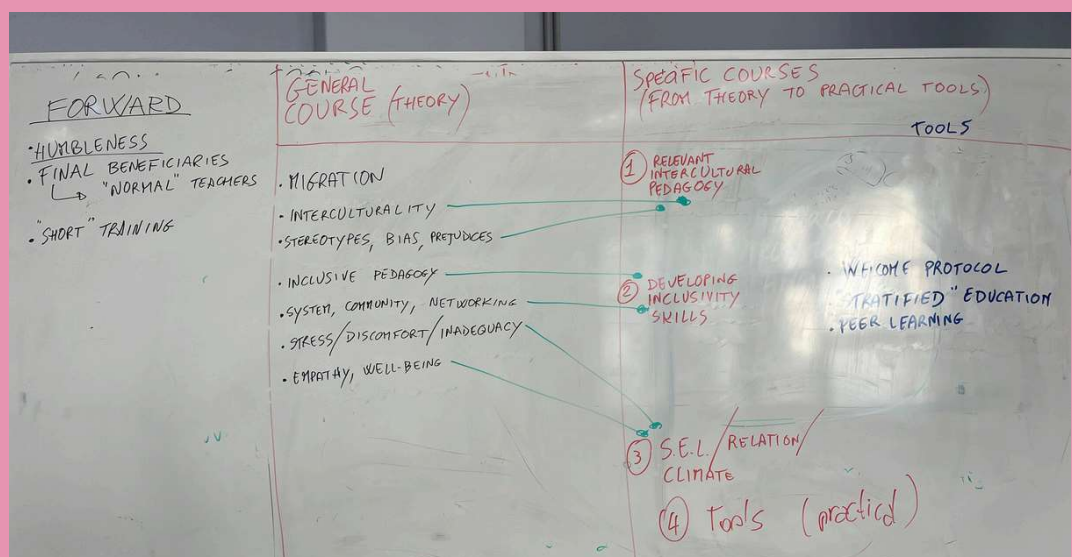 FORWARD
• HUMBLENESS
• FINAL BENEFICIARIES
"NORMAL" TEACHERS
• "SHORT" TRAINING
GENERAL
COURSE (THEORY)
• MIGRATION
• INTERCULTURALITY
• STEREOTYPES, BIAS, PREJUDICES
• INCLUSIVE PEDAGOGY
• SYSTEM, COMMUNITY, NETWORKING
• STRESS/DISCOMFORT/INADEQUACY
• EMPATHY, WELL-BEING
SPECIFIC COURSES
(FROM THEORY TO PRACTICAL TOOLS)
TOOLS
1 RELEVANT
INTERCULTURAL
PEDAGOGY
2 DEVELOPING
INCLUSIVITY
SKILLS
• WELCOME PROTOCOL
"STRATIFIED" EDUCATION
• PEER LEARNING
3 S.E.L./RELATION/
CLIMATE
4 Tools (practical)